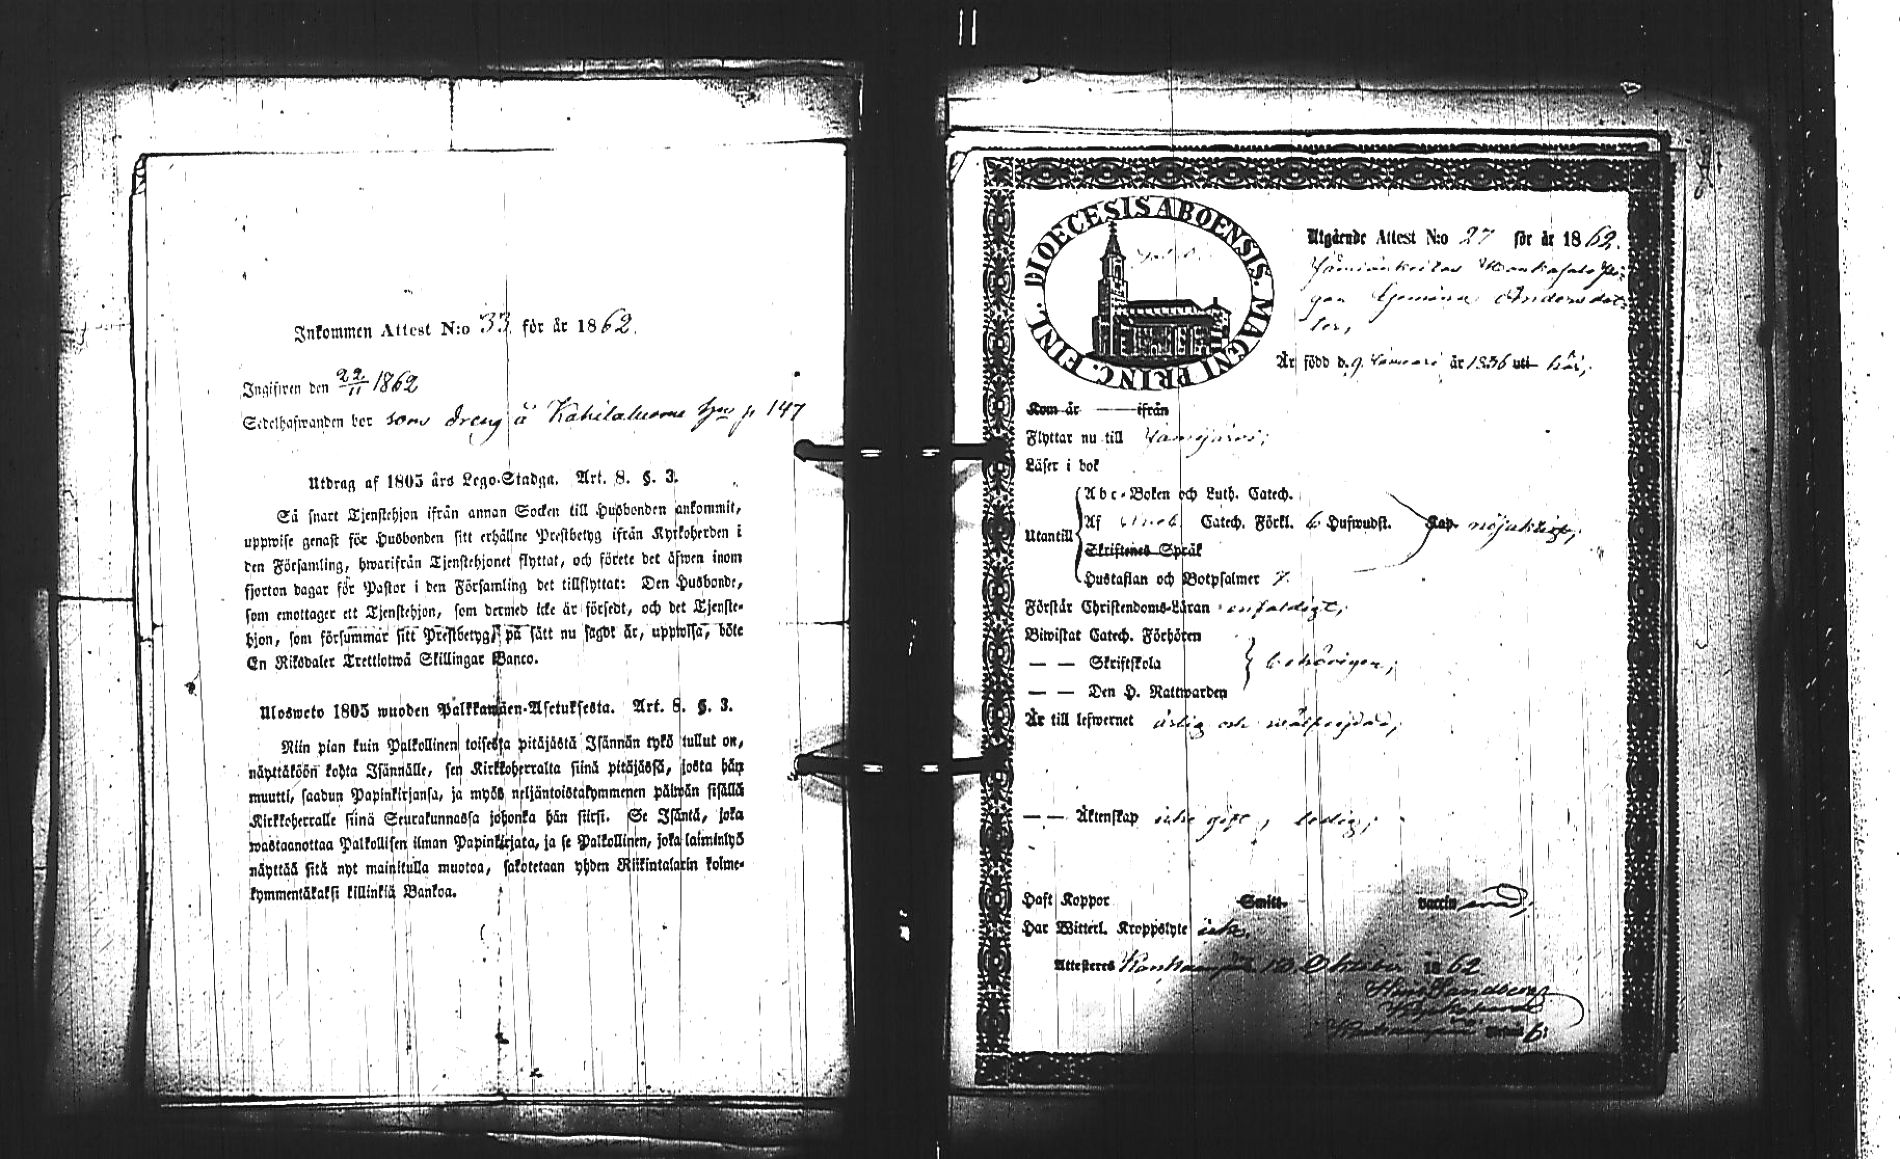 Inkommen Attest N:o 33 för år 1862.
Ingifwen den 22/11 1862
Sedelhafwanden bor som dreng å p 147
Utdrag af 1805 års Lego-Stadga. Art. 8. §. 3.
Så snart Tjenstehjon ifrån annan Socken till Husbonden ankommit,
uppwise genast för Husbonden sitt erhållne Prestbetyg ifrån Kyrkoherden i
den Församling, hwarifrån Tjenstehjonet flyttat, och förete det äfwen inom
fjorton dagar för Pastor i den Församling det tillflyttat: Den Husbonde,
som emottager ett Tjenstehjon, som dermed icke är försedt, och det Tjenste-
hjon, som försummar sitt Prestbetyg, på sätt nu sagdt är, uppwisa, böte
En Riksdaler Trettiotwå Skillingar Banco.
Ulosweto 1805 wuoden Palkkawäen-Asetuksesta. Art. 8. §. 3.
Niin pian kuin Palkollinen toisesta pitäjästä Isännän tykö tullut on,
näyttäköön kohta Isännälle, sen Kirkkoherralta siinä pitäjässä, josta hän
muutti, saadun Papinkirjansa, ja myös neljäntoistakymmenen päiwän sisällä
Kirkkoherralle siinä Seurakunnassa johonka hän siirsi. Se Isäntä, joka
wastaanottaa Palkollisen ilman Papinkirjata, ja se Palkollinen, joka laiminlyö
näyttää sitä nyt mainitulla muotoa, sakotetaan yhden Riikintalarin kolme-
kymmentäkaksi killinkiä Bankoa.
DIOECESIS ABOENSIS. MAGNI PRINC. FINL.
Utgående Attest N:o 27 för år 1862.
Andersdot-
ter,
Är född d. 9 Januari år 1836 uti här,
Kom år ifrån
Flyttar nu till Jämijärvi;
Läser i bok
Abc-Boken och Luth. Catech.
Utantill Af Catech. Förkl. 6 Hufwudst. Cap. nöjaktigt,
Skriftenes Språk
Hustaflan och Botpsalmer 7.
Förstår Christendoms-Läran enfaldigt,
Biwistat Catech. Förhören
— — Skriftskola behörigen,
— — Den H. Nattwarden
Är till lefwernet ärlig och
— — Äktenskap icke gift, ledig,
Haft Koppor Smitt- vaccin
Har Witterl. Kroppslyte icke.
Attesteras Kankaanpää 18 Oktober 1862